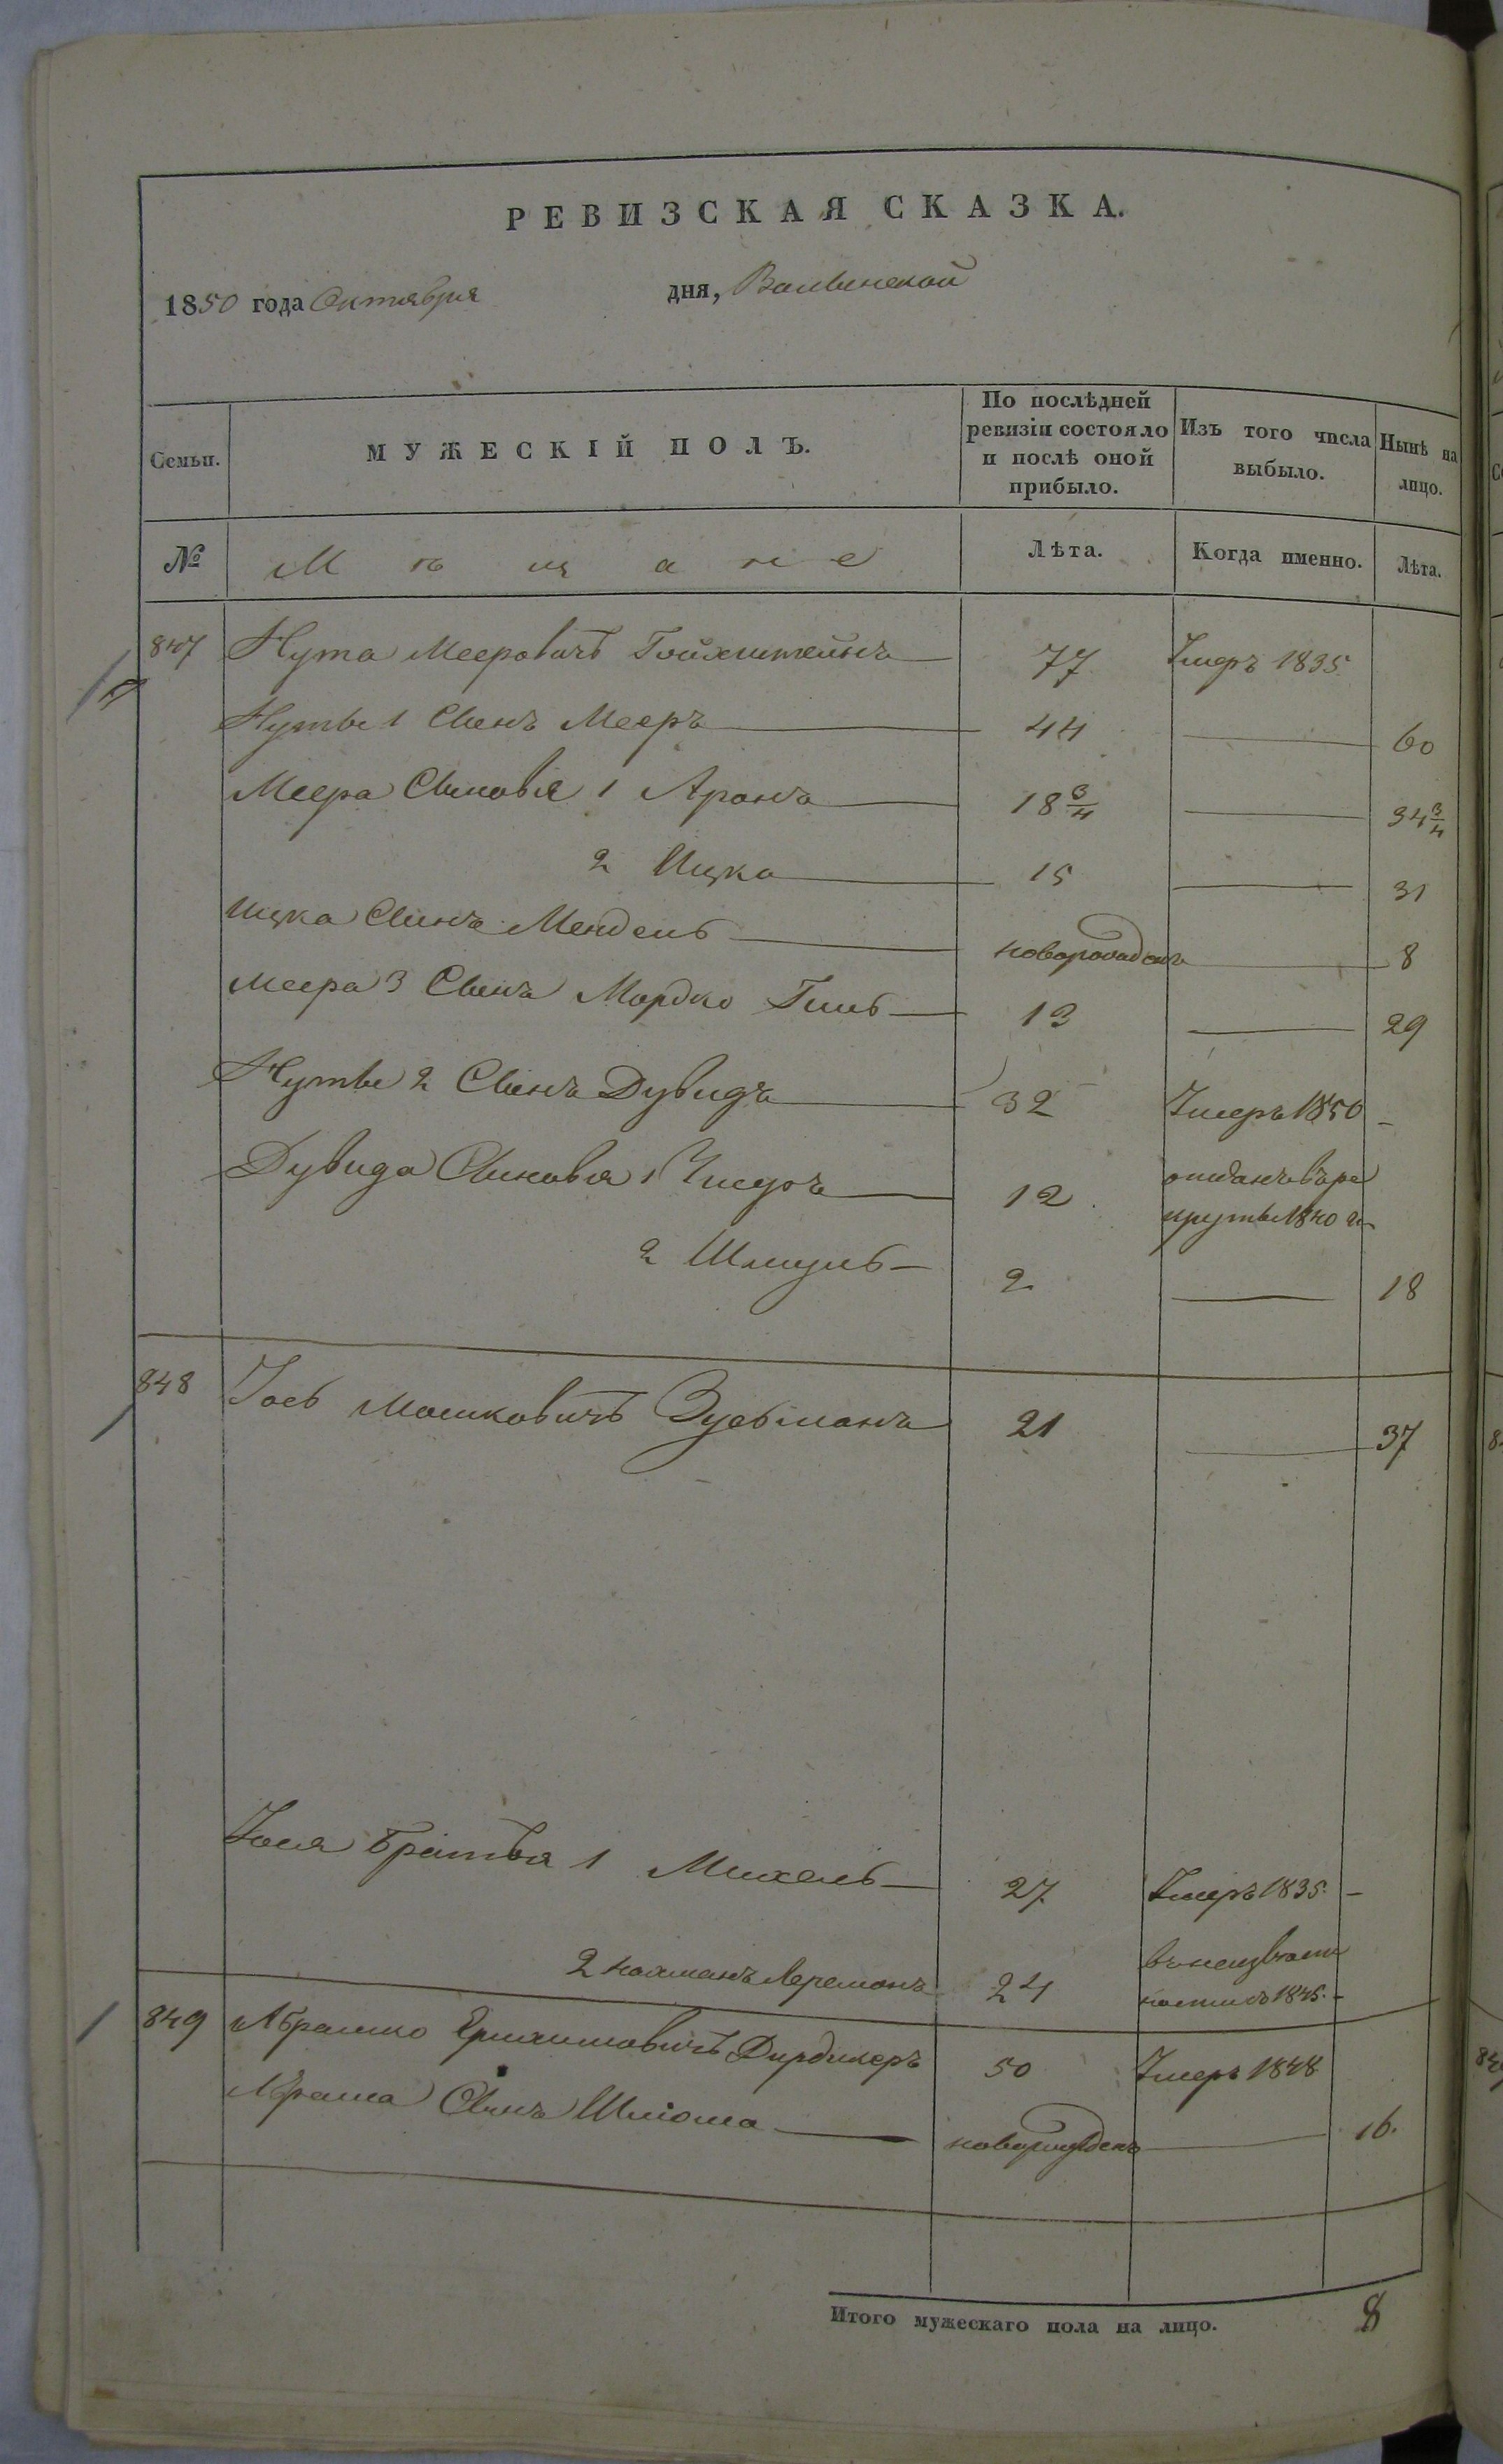 РЕВИЗСКАЯ СКАЗКА.
1850 года Октября дня, Волынской
Семьи. МУЖЕСКІЙ ПОЛЪ. По послѣдней ревизіи состояло и послѣ оной прибыло. Изъ того числа выбыло. Нынѣ на лицо.
№ Мѣщане Лѣта. Когда именно. Лѣта.
847 Нута Мееровичъ Гойхштейнъ 77 Умеръ 1835
Нуты 1 Сынъ Мееръ 44 60
Меера Сыновья 1 Аронъ 18 3/4 34 3/4
2 Ицко 15 31
Ицка Сынъ Мендель новорожденъ 8
Меера 3 Сынъ Мордко 13 29
Нуты 2 Сынъ Дувидъ 32 Умеръ 1850
Дувида Сыновья 1 12 отданъ в ре
круты 1840 г.
2 Шмуль 2 18
848 Іось Мошковичъ Зусьманъ 21 37
Іося Братья 1 Михель 27 Умеръ 1835.
2 Нахманъ 24 въ неизвѣстн
ности съ 1845.
849 Абрамко Дирдикеръ 50 Умеръ 1848
Абрама Сынъ Шліома новорожденъ 16.
Итого мужескаго пола на лицо. 8